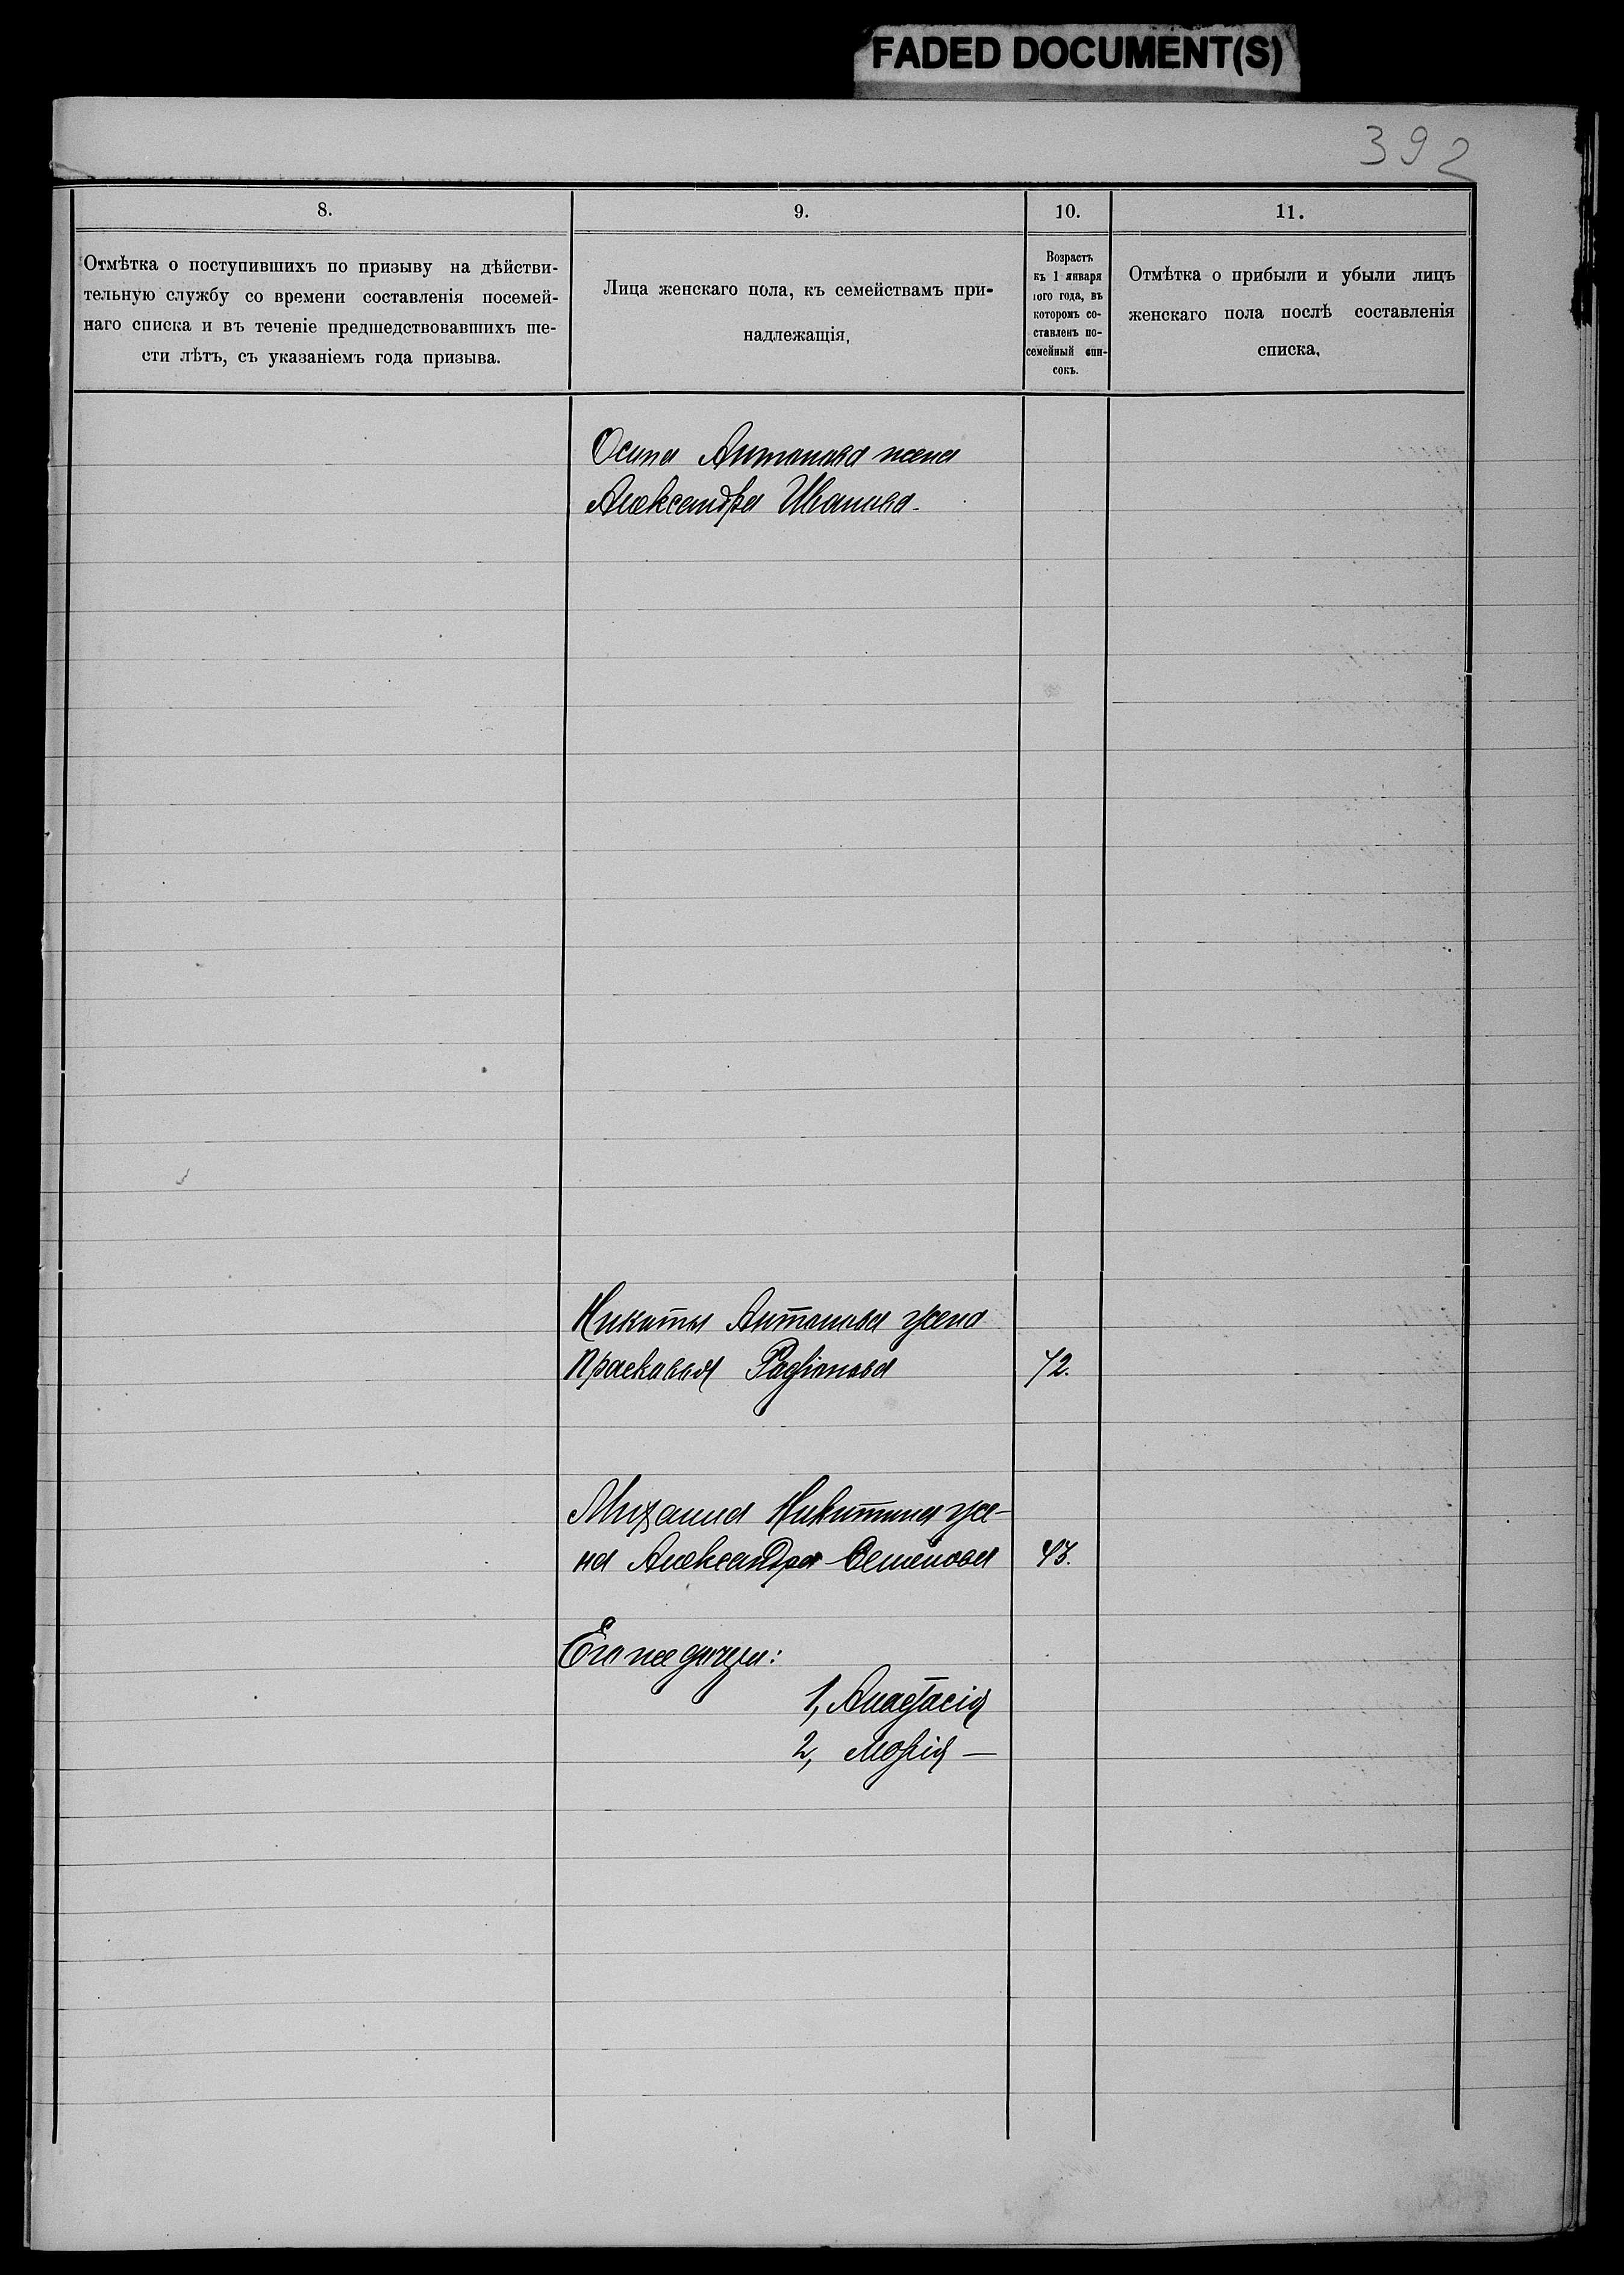 FADED DOCUMENT(S)
392
8.
9.
10.
11.
Отмѣтка о поступившихъ по призыву на дѣйстви-
тельную службу со времени составленія посемей-
наго списка и въ теченіе предшедствовавшихъ ше-
сти лѣтъ, съ указаніемъ года призыва.
Лица женскаго пола, къ семействамъ при-
надлежащія,
Возрастъ
къ 1 января
того года, въ
которомъ со-
ставленъ по-
семейный спи-
сокъ.
Отмѣтка о прибыли и убыли лицъ
женскаго пола послѣ составленія
списка,
Осипа Антонова жена
Александра Иванова.
Никиты Антонова жена
Прасковья Радіонова 72.
Михаила Никитина же-
на Александра Семенова 43.
Его же дочери:
1, Анастасія
2, Марія —